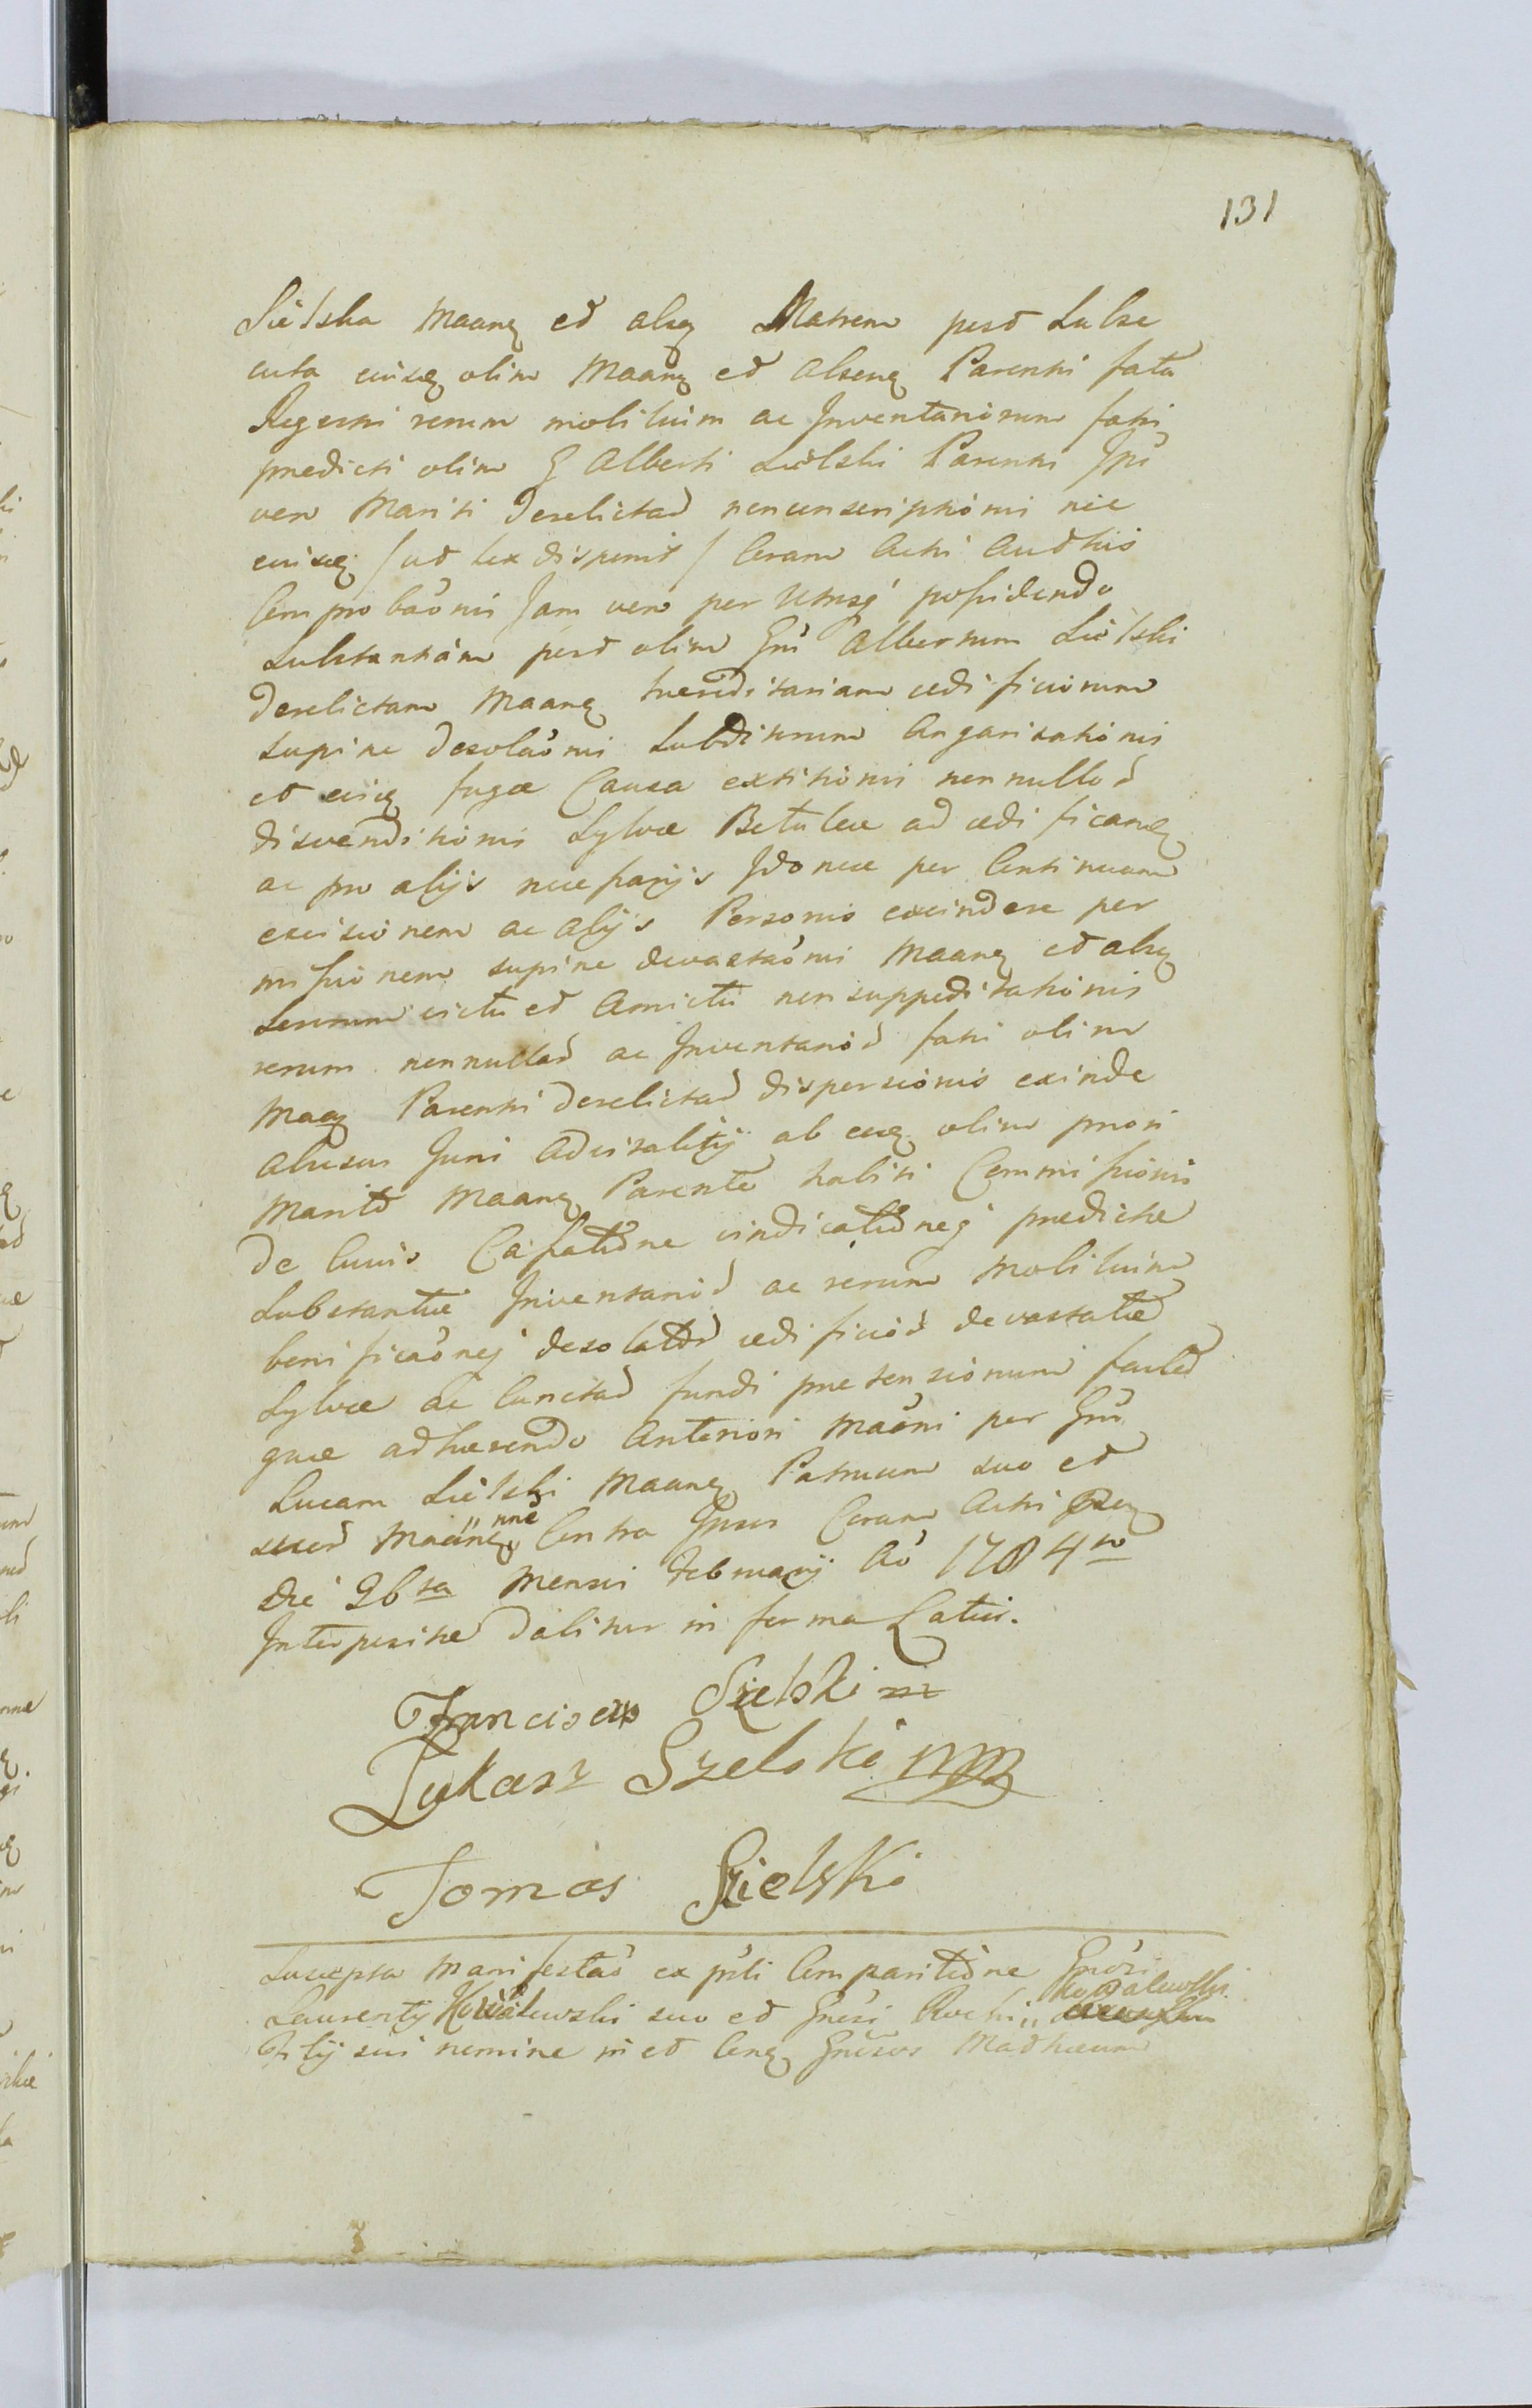 131
Sielska Maanq et alsq Matrem post Subse
cuta eiusq olim Maanq et alsenq Parenti fata
Regesti rerum mobilium ac Inventariorum fati
predicti olim G Alberti Sielski Parenti Ipi
vero Mariti derelictad nonconscriptionis nec
eiusq / ut lex disponit / Coram Acti Authis
Comprobaōnis Jam vero per Utrusq possidendo
Substantiam post olim Gni Albertum Sielski
derelictam Maanq hæreditariam ædificiorum
supine desolaōnis Subditorum Angarisationis
et eiusq fugæ Causa extitionis nonnullod
disvenditionis Sylvæ Betuleæ ad ædificanq
ac pro alijs necessarijs Idoneæ per Continuam
excisionem ac alijs Personis excindere per
missionem supine devastaōnis Maanq et alsq
victu et Amictu non suppeditationis
rerum nonnullad ac Inventariod fati olim
Maanq Parenti derelictad dispersionis exinde
abusus Juri Advitalitij ab eoq olim priori
Marito Maanq Parente habiti Commissionis
de Cuius Cassatione vindicationeq predictæ
Substantiæ Inventariod ac rerum Mobilium
bonificaōneq desolatod ædificiod devastatæ
Sylvæ ac Cunctad fundi pretensionum
quæ adhærendo Anteriori Maōni per Gnū
Lucam Sielski Maanq Patruum suo et
Maanq nne Contra Ipsos Coram Acti
die 26ta Mensis Februarij Aō 1784to
Interpositæ dabitur in forma Latiori.
Franciscus Sielski m
Łukasz Szelski mpp
Tomas Sielski
Suscepta Manifestaō ex psti Comparitione Gnōsi
Laurentij Kowalewski suo et Gnosi Rochi " Kowalewski
Filij sui nomine in et Conq Gnosos Mathæum